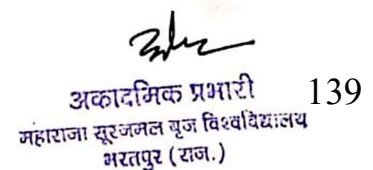 अकादमिक प्रभारी 139
महाराजा सूरजमल बृज विश्वविद्यालय
भरतपुर (राज.)